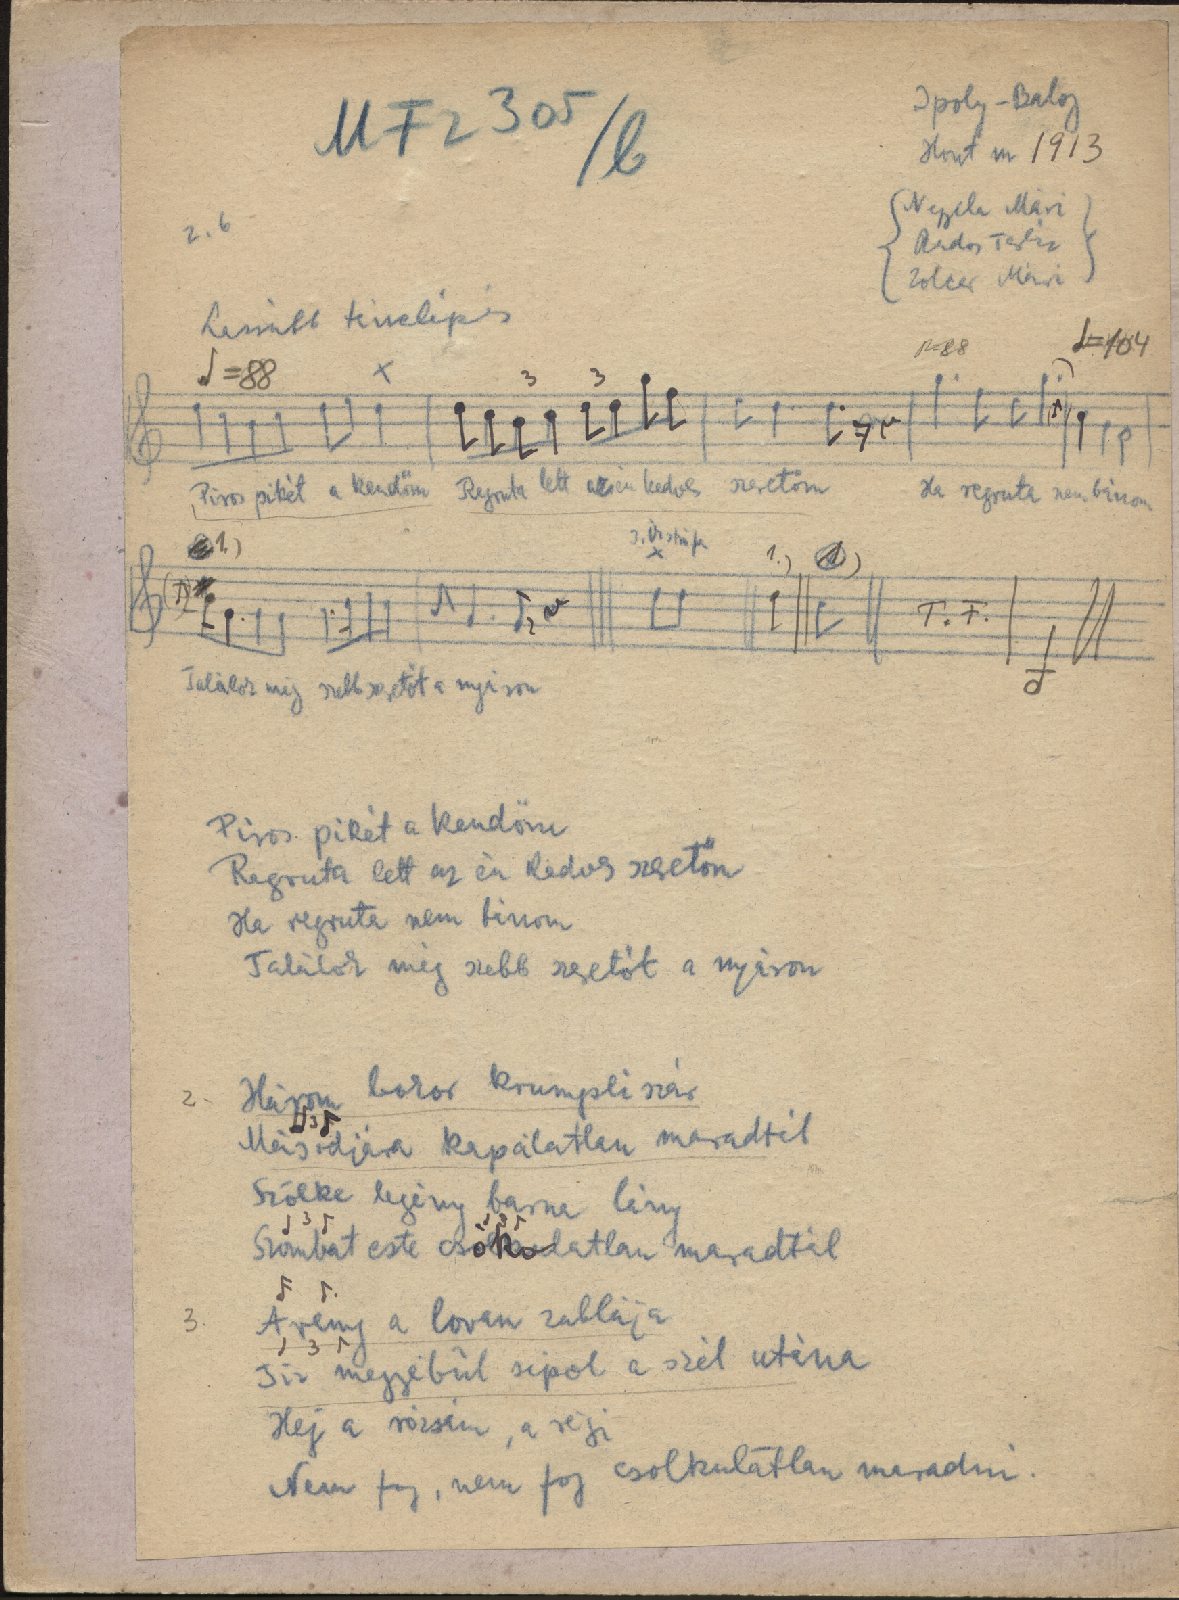 MF 2305/b
Ipoly-Balog
Hont m 1913
Mári
Mári
2.6
♩=88
♩=104
3 3
Piros pikét a kendőm Regruta lett az én kedves szeretőm Ha regruta nem bánom
1.)
3. Vs.
1.)
T. F.
Találok még szebb szeretőt a nyáron
Piros pikét a kendőm
Regruta lett az én kedves szeretőm
Ha regruta nem bánom
Találok még szebb szeretőt a nyáron
2. Három bokor krumpliszár
Másodjára kapálatlan maradtál
Szőke legény barna lány
Szombat este csókolatlan maradtál
3. Arany a lovam zablája
Tíz megyébűl sipol a szél utána
Hej a rózsám, a régi
Nem fog, nem fog csolkulatlan maradni.